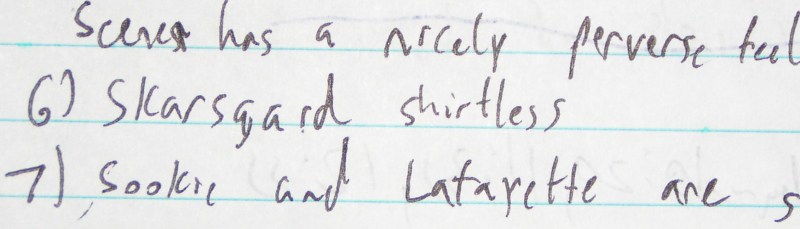 Scenes has a nicely perverse feel
6) Skarsgard shirtless
7) Sookie and Lafayette are s